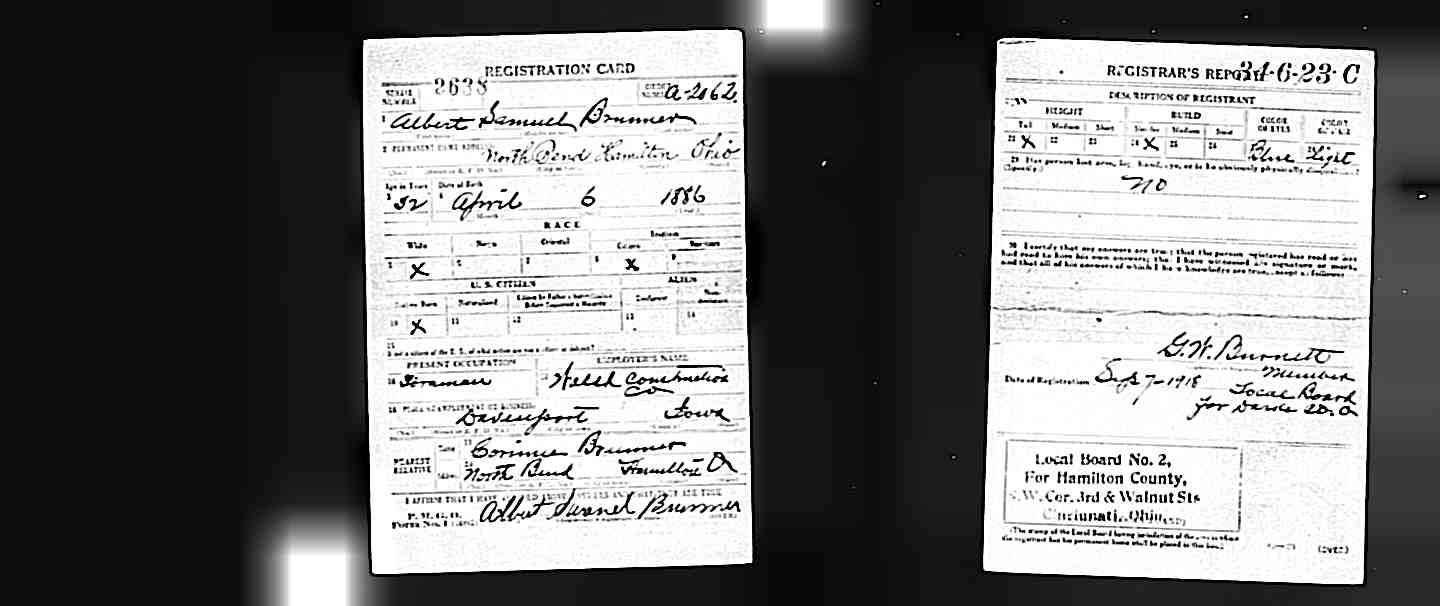 REGISTRATION CARD
SERIAL NUMBER 2638 ORDER NUMBER A-2062
1 Albert Samuel Brunner
2 PERMANENT HOME ADDRESS
North Bend Hamilton Ohio
Age in Years Date of Birth
3 32 4 April 6 1886
Month
RACE
White Negro Oriental Indian
Citizen
5 X 6 7 8 X 9
U. S. CITIZEN ALIEN
Native Born Naturalized
10 X 11 12 13 14
15
PRESENT OCCUPATION EMPLOYER'S NAME
16 Foreman Welsh Construction
Co
18 PLACE OF EMPLOYMENT OR BUSINESS
Davenport Iowa
NEAREST RELATIVE Name 19 Corinne Brunner
Address North Bend Hamilton O
I AFFIRM THAT I HAVE
P. M. G. O.
Form No. 1
Albert Samuel Brunner
REGISTRAR'S REPORT 34-6-23-C
DESCRIPTION OF REGISTRANT
HEIGHT BUILD COLOR OF EYES COLOR
Tall Medium Short Slender Medium Stout
21 X 22 23 24 X 25 26 Blue Light
29 Has person lost arm, leg, hand, eye, or is he obviously physically disqualified?
(Specify.)
no
30 I certify that my answers are true; that the person registered has read or has
had read to him his own answers; that I have witnessed his signature or mark,
and that all of his answers of which I have knowledge are true, except as follows:
G.W. Burnett
Member
Date of Registration Sep 7-1918
Local Board
for
Local Board No. 2,
For Hamilton County,
S.W. Cor. 3rd & Walnut Sts
Cincinnati, Ohio.
(The stamp of the Local Board having jurisdiction of the area in which
the registrant has his permanent home shall be placed in this box.)
(OVER)